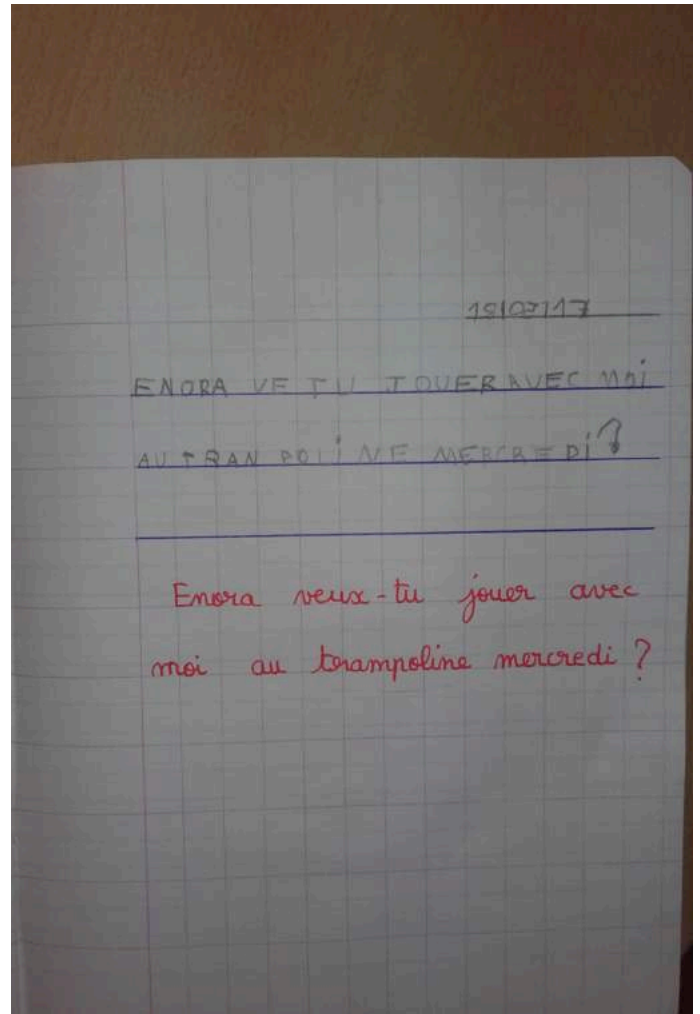 18/07/17
ENORA VE TU JOUER AVEC MOi
AU TRAN POLiNE MERCREDi?
Enora veux-tu jouer avec
moi au trampoline mercredi ?